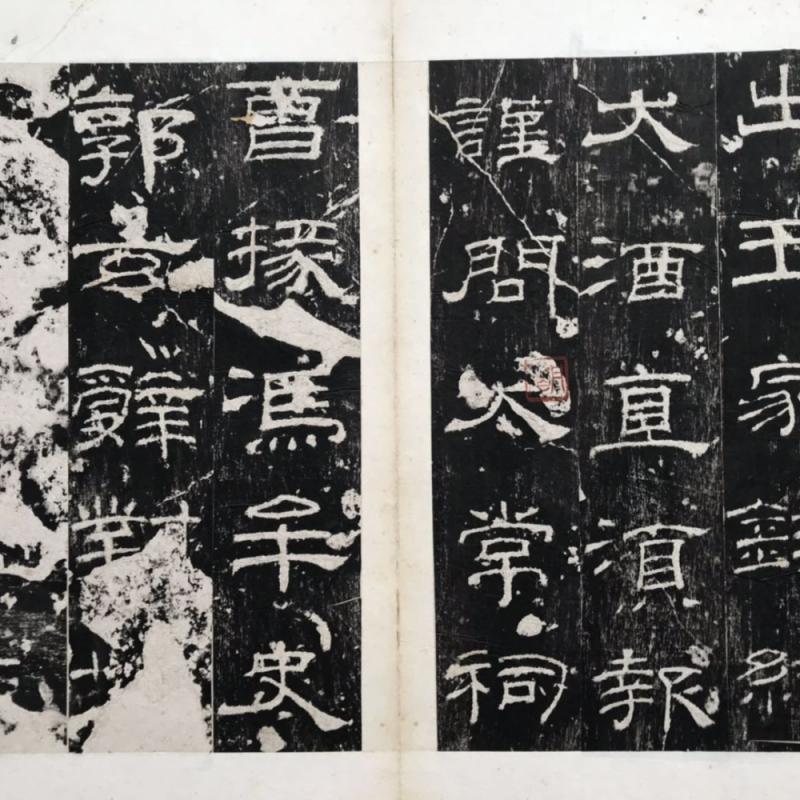 出王家錢給
大酒直湏報
謹問大常祠
曹掾馮牟史
郭玄辭對